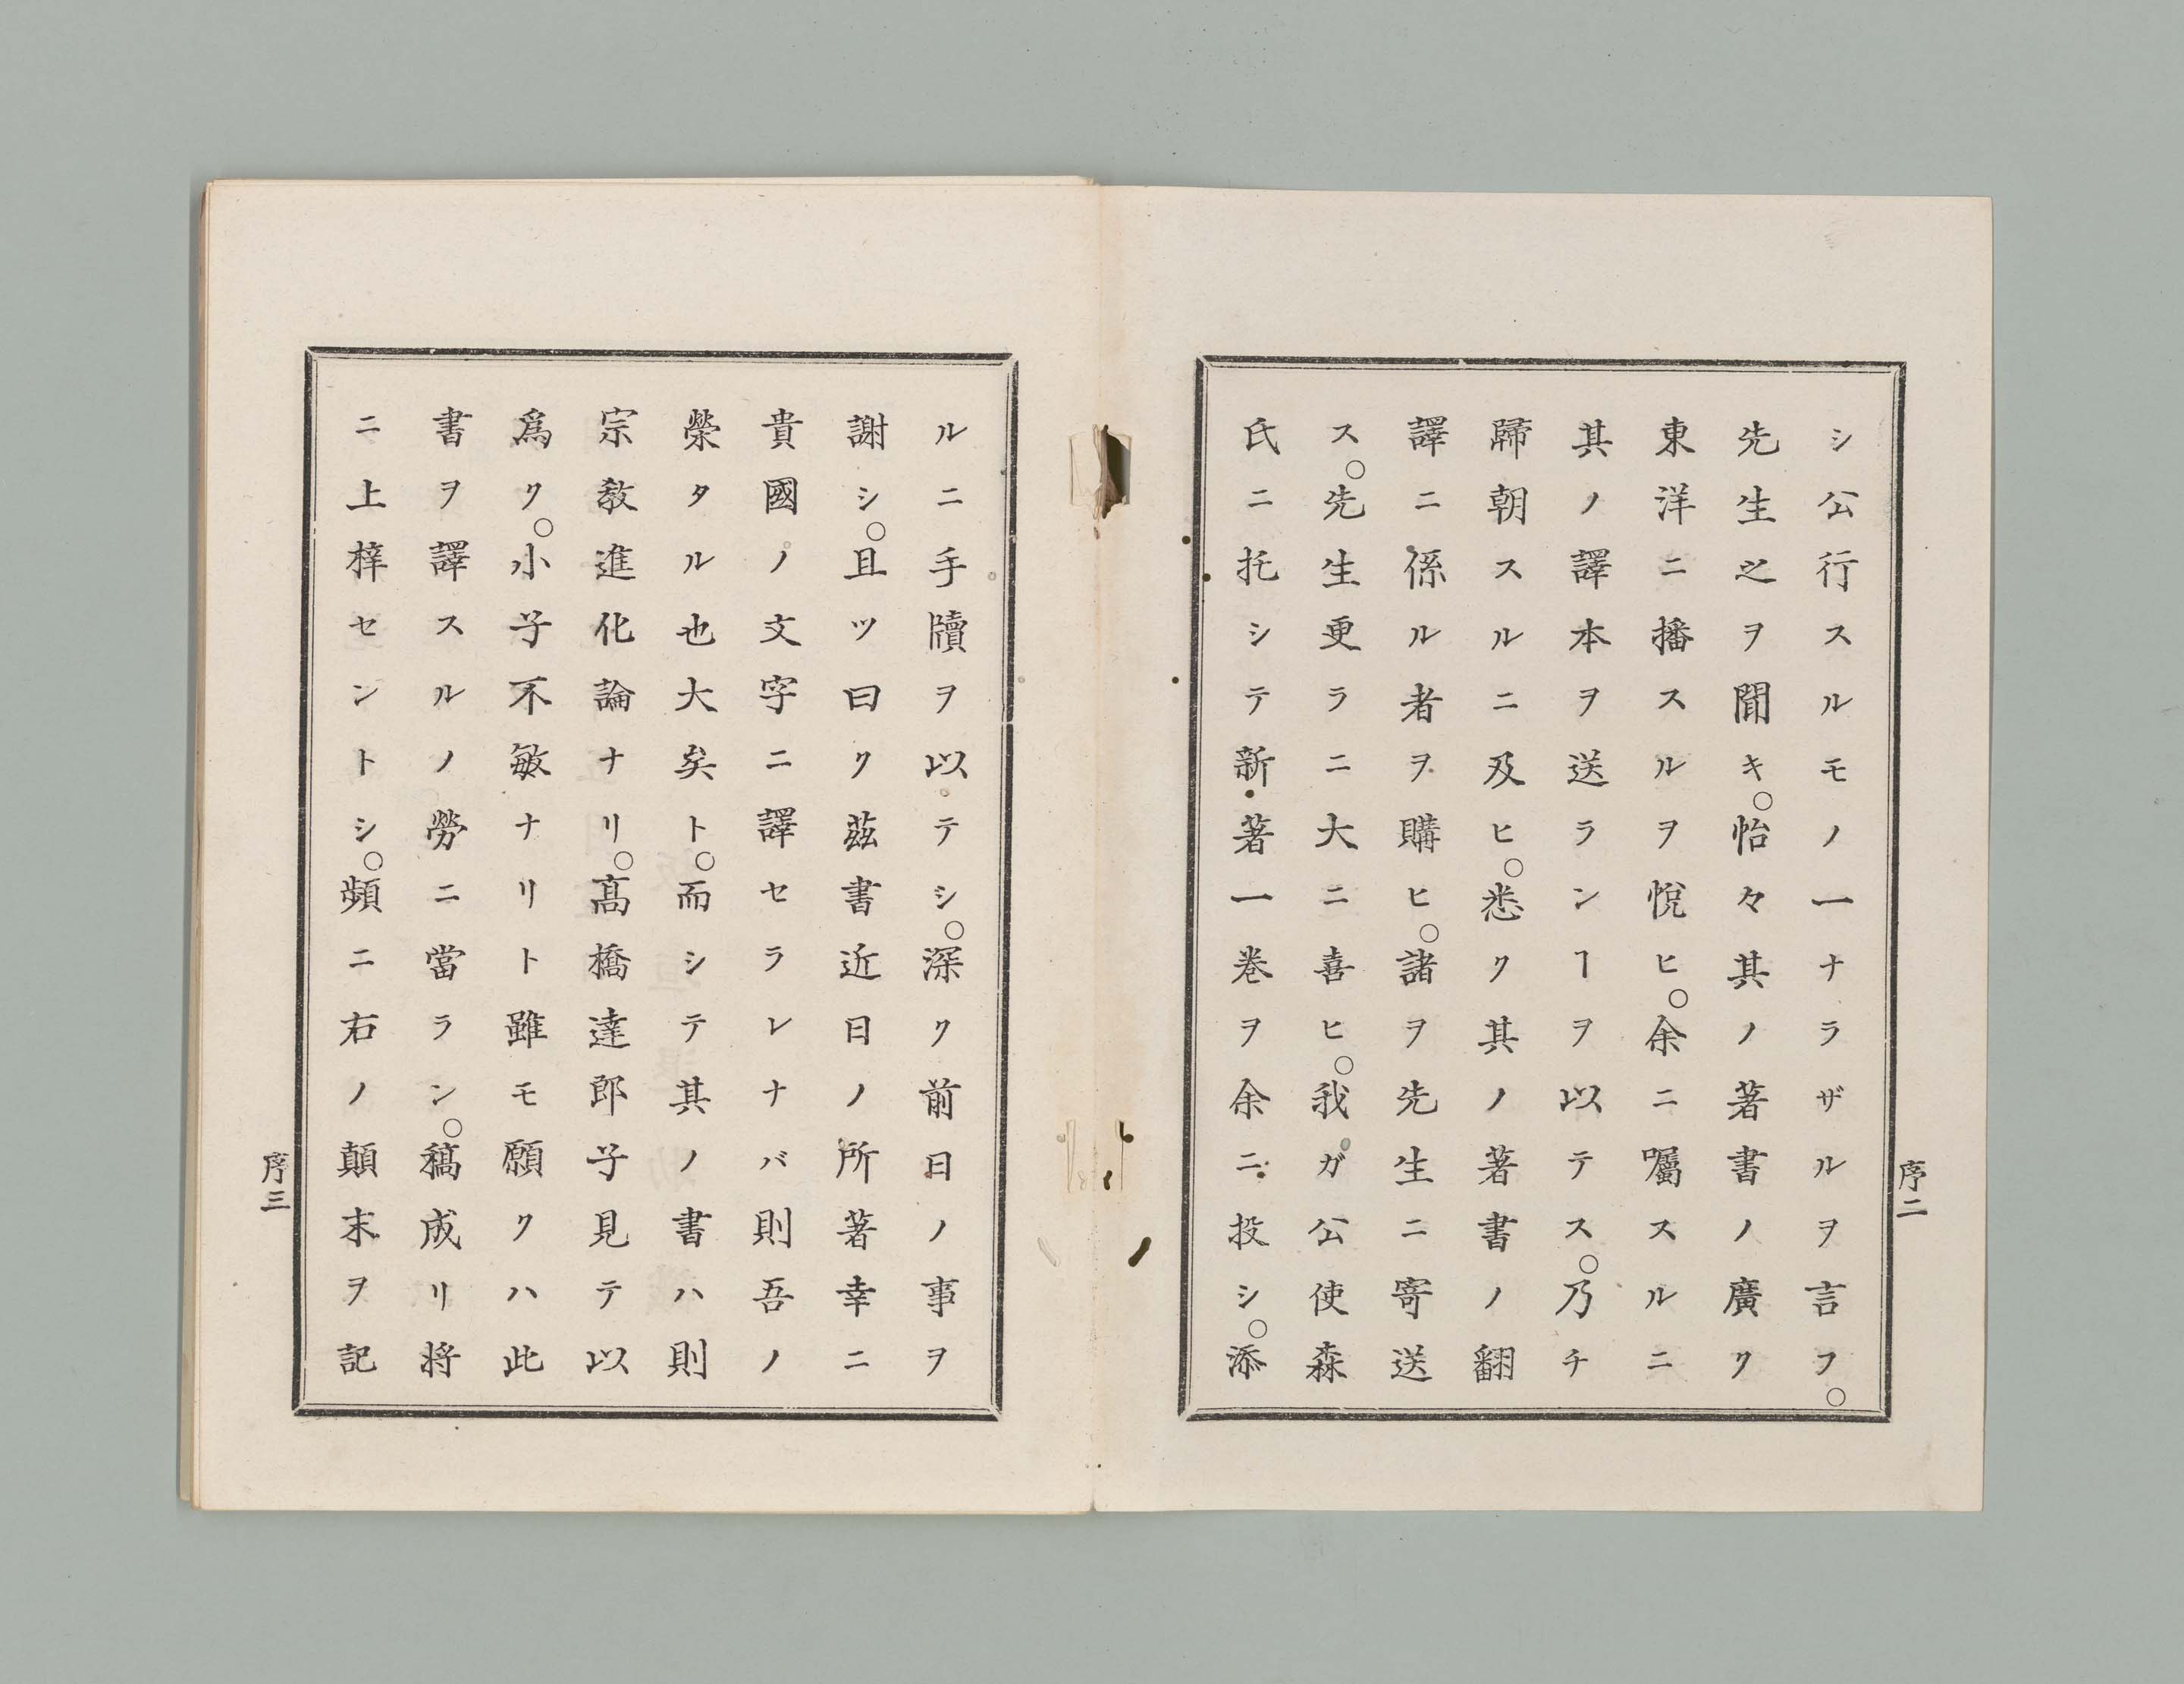 シ公行スルモノ一ナラザルヲ言フ。
先生之ヲ聞キ。怡々其ノ著書ノ廣ク
東洋ニ播スルヲ悅ヒ。余ニ囑スルニ
其ノ譯本ヲ送ランヿヲ以テス。乃チ
歸朝スルニ及ヒ。悉ク其ノ著書ノ翻
譯ニ係ル者ヲ購ヒ。諸ヲ先生ニ寄送
ス。先生更ラニ大ニ喜ヒ。我ガ公使森
氏ニ托シテ新著一卷ヲ余ニ投シ。添
序二
ルニ手牘ヲ以テシ。深ク前日ノ事ヲ
謝シ。且ツ曰ク茲書近日ノ所著幸ニ
貴國ノ文字ニ譯セラレナバ則吾ノ
榮タル也大矣ト。而シテ其ノ書ハ則
宗敎進化論ナリ。髙橋達郎子見テ以
爲ク。小子不敏ナリト雖モ願クハ此
書ヲ譯スルノ勞ニ當ラン。稿成リ将
ニ上梓セントシ。頻ニ右ノ顛末ヲ記
序三